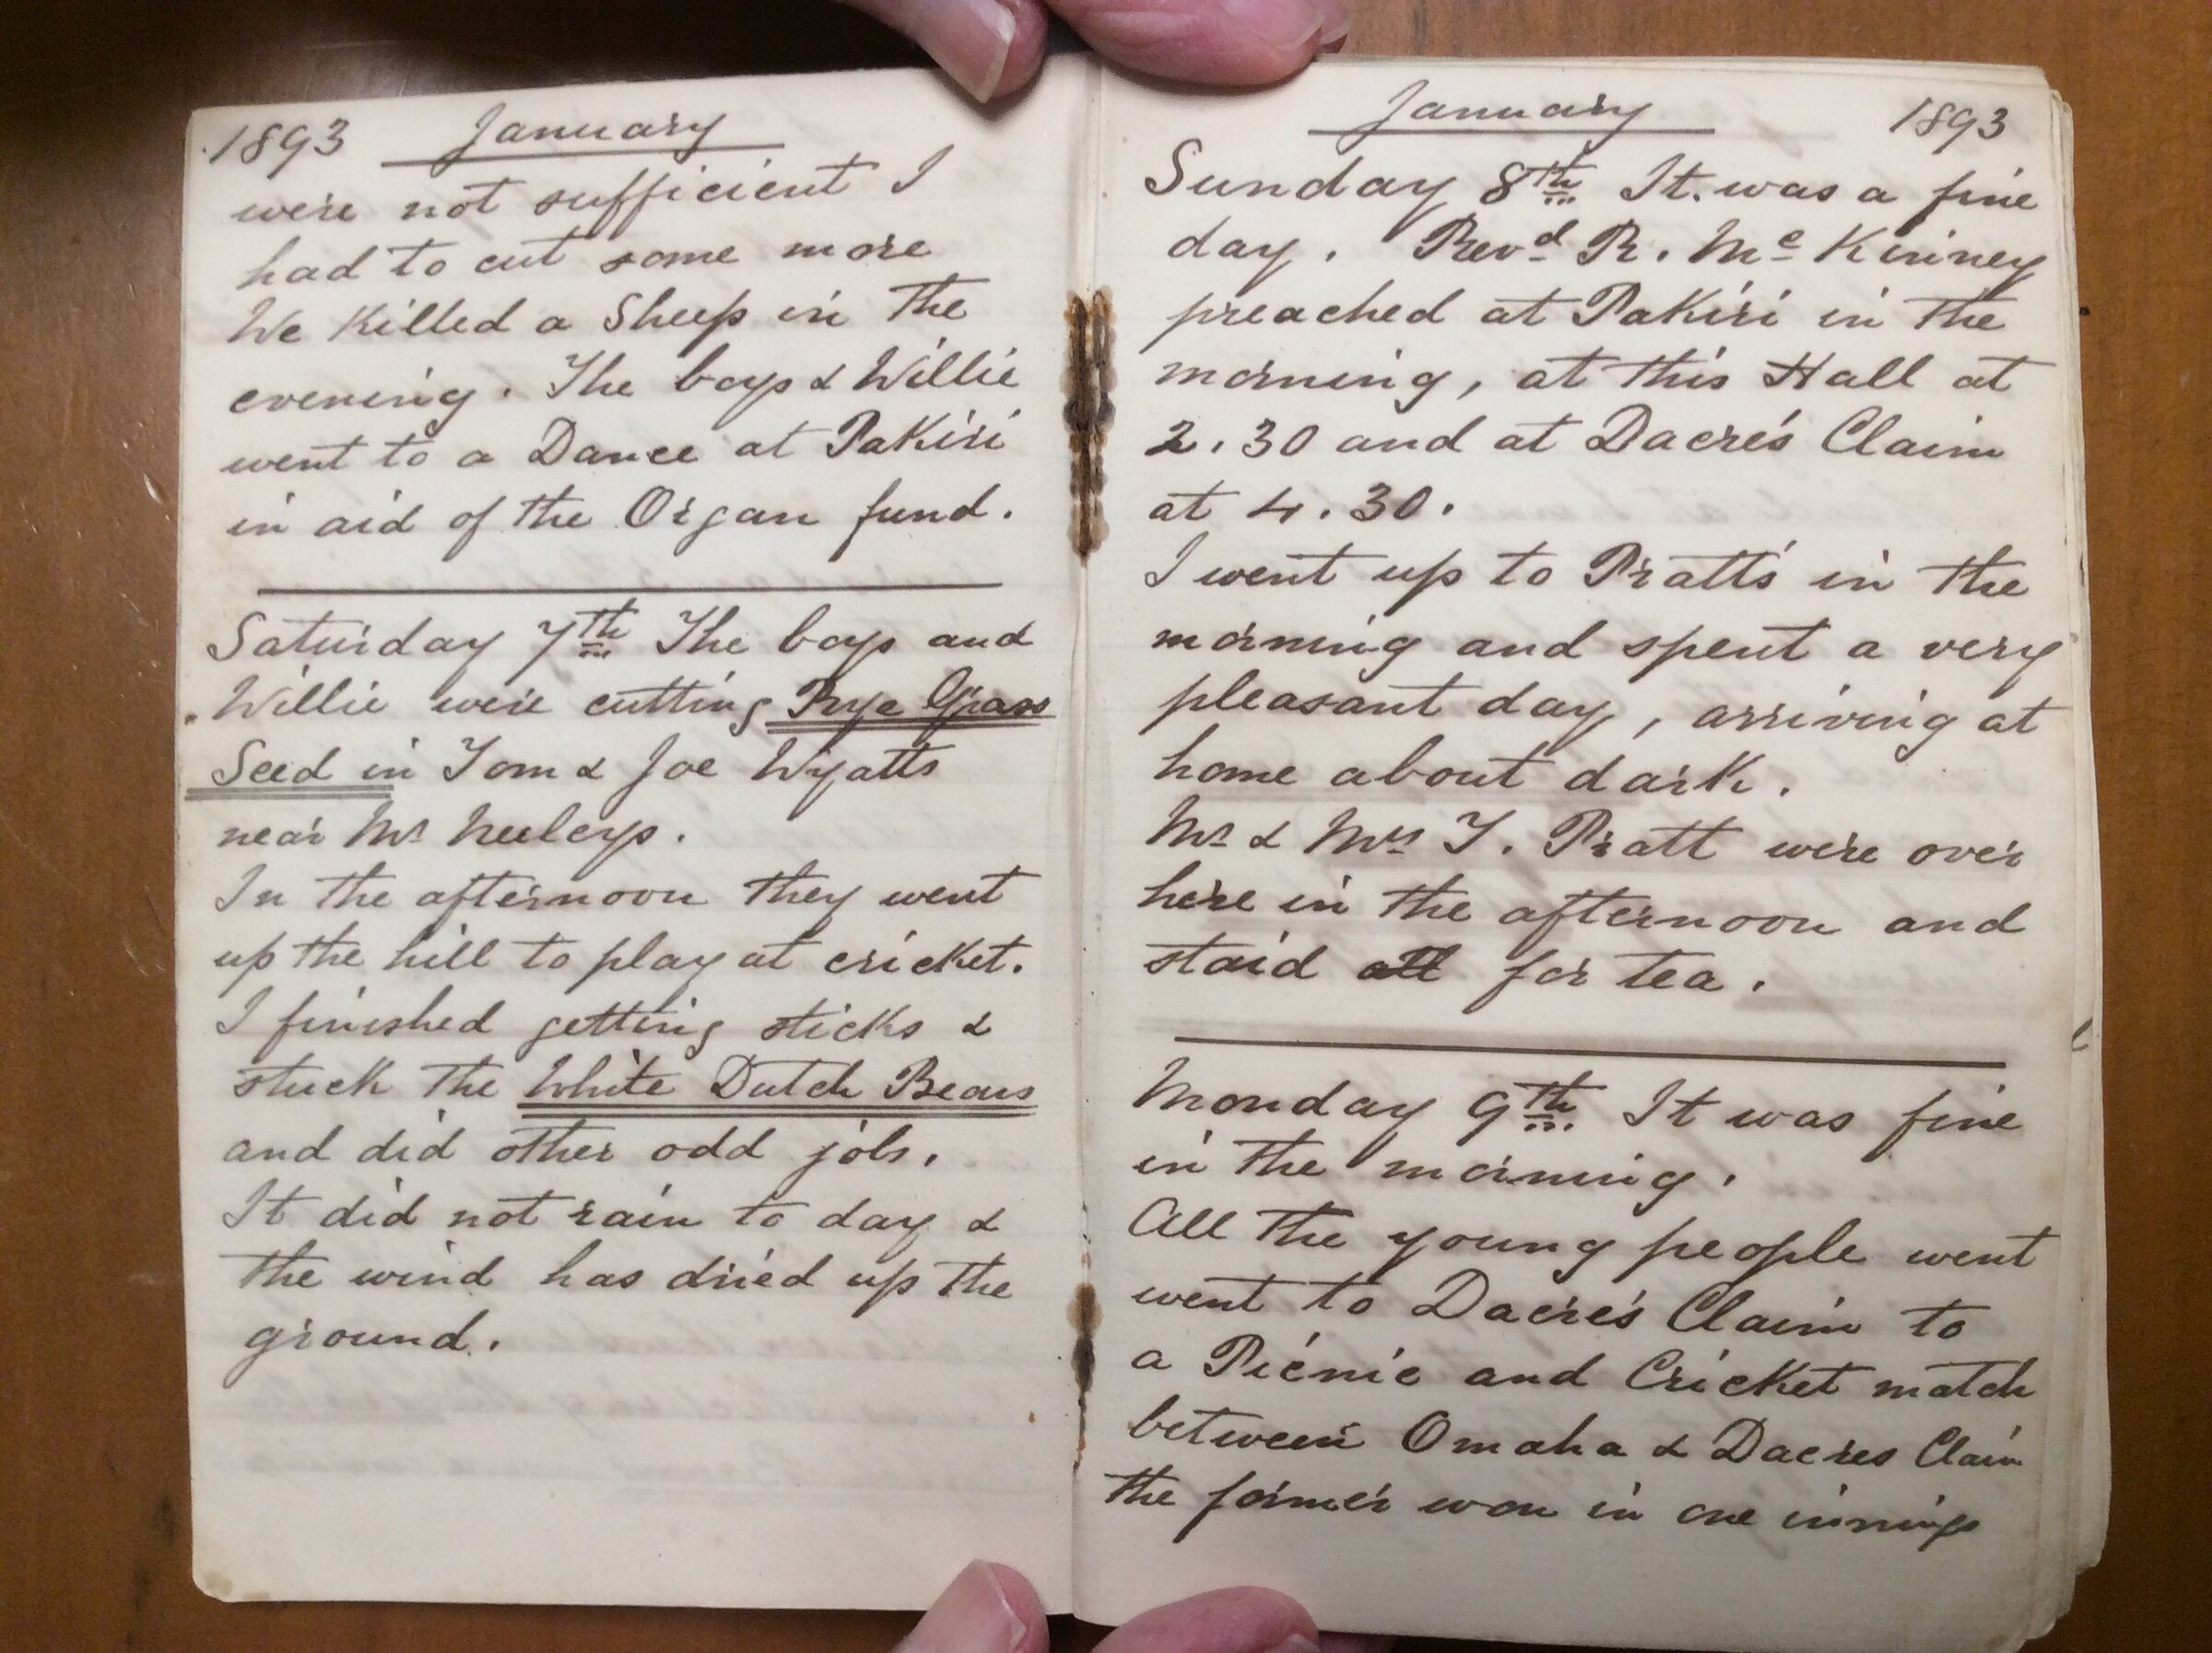 1893 January
were not sufficient I
had to cut some more
We Killed a Sheep in the
evening. The boys & Willie
went to a Dance at Pakiri
in aid of the Organ fund.
Saturday 7th The boys and
Willie were cutting Rye Grass
Seed in Tom & Joe Wyatts
near Mr Neeleys.
In the afternoon they went
up the hill to play at cricket.
I finished getting sticks &
stuck the White Dutch Beans
and did other odd jobs.
It did not rain to day &
the wind has dried up the
ground.
January 1893
Sunday 8th It was a fine
day. Revd R. Mc Kinney
preached at Pakiri in the
morning, at this Hall at
2.30 and at Dacre's Claim
at 4.30.
I went up to Pratt's in the
morning and spent a very
pleasant day, arriving at
home about dark.
Mr & Mrs T. Pratt were over
here in the afternoon and
staid all for tea.
Monday 9th It was fine
in the morning.
All the young people went
went to Dacre's Claim to
a Picnic and Cricket match
between Omaha & Dacres Claim
the former won in one innings